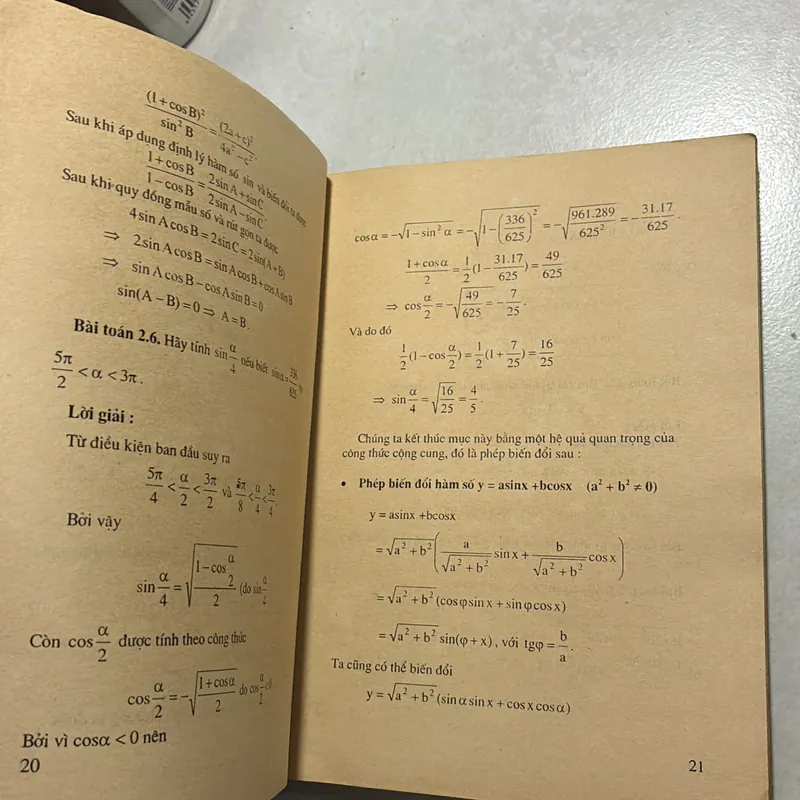 (1+cosB)²/sin²B = (2a+c)²/(4a²−c²)
Sau khi áp dụng định lý hàm số sin và biến đổi ta được
(1+cosB)/(1−cosB) = (2sinA+sinC)/(2sinA−sinC).
Sau khi quy đồng mẫu số và rút gọn ta được
4sinAcosB=2sinC=2sin(A+B)
⇒ 2sinAcosB=sinAcosB+cosAsinB
⇒ sinAcosB−cosAsinB=0
sin(A−B)=0 ⇒ A=B.
Bài toán 2.6. Hãy tính sin α/4 nếu biết sinα=336/625
5π/2 < α < 3π.
Lời giải :
Từ điều kiện ban đầu suy ra
5π/4 < α/2 < 3π/2 và 5π/8 < α/4 < 3π/4.
Bởi vậy
sin α/4 = √((1−cos α/2)/2) (do sin α/4
Còn cos α/2 được tính theo công thức
cos α/2 = −√((1+cosα)/2) do cos α/2 <0
Bởi vì cosα < 0 nên
20
cosα=−√(1−sin²α) =−√(1−(336/625)²) =−√(961.289/625²) =−31.17/625.
(1+cosα)/2 = 1/2(1−31.17/625) = 49/625
⇒ cos α/2 =−√(49/625) =−7/25.
Và do đó
1/2(1−cos α/2) = 1/2(1+7/25) = 16/25
⇒ sin α/4 = √(16/25) = 4/5.
Chúng ta kết thúc mục này bằng một hệ quả quan trọng của
công thức cộng cung, đó là phép biến đổi sau :
• Phép biến đổi hàm số y = asinx +bcosx (a² + b² ≠ 0)
y = asinx +bcosx
=√(a²+b²)(a/√(a²+b²) sinx + b/√(a²+b²) cosx)
=√(a²+b²)(cosφsinx+sinφcosx)
=√(a²+b²) sin(φ+x), với tgφ= b/a.
Ta cũng có thể biến đổi
y=√(a²+b²)(sinαsinx+cosxcosα)
21